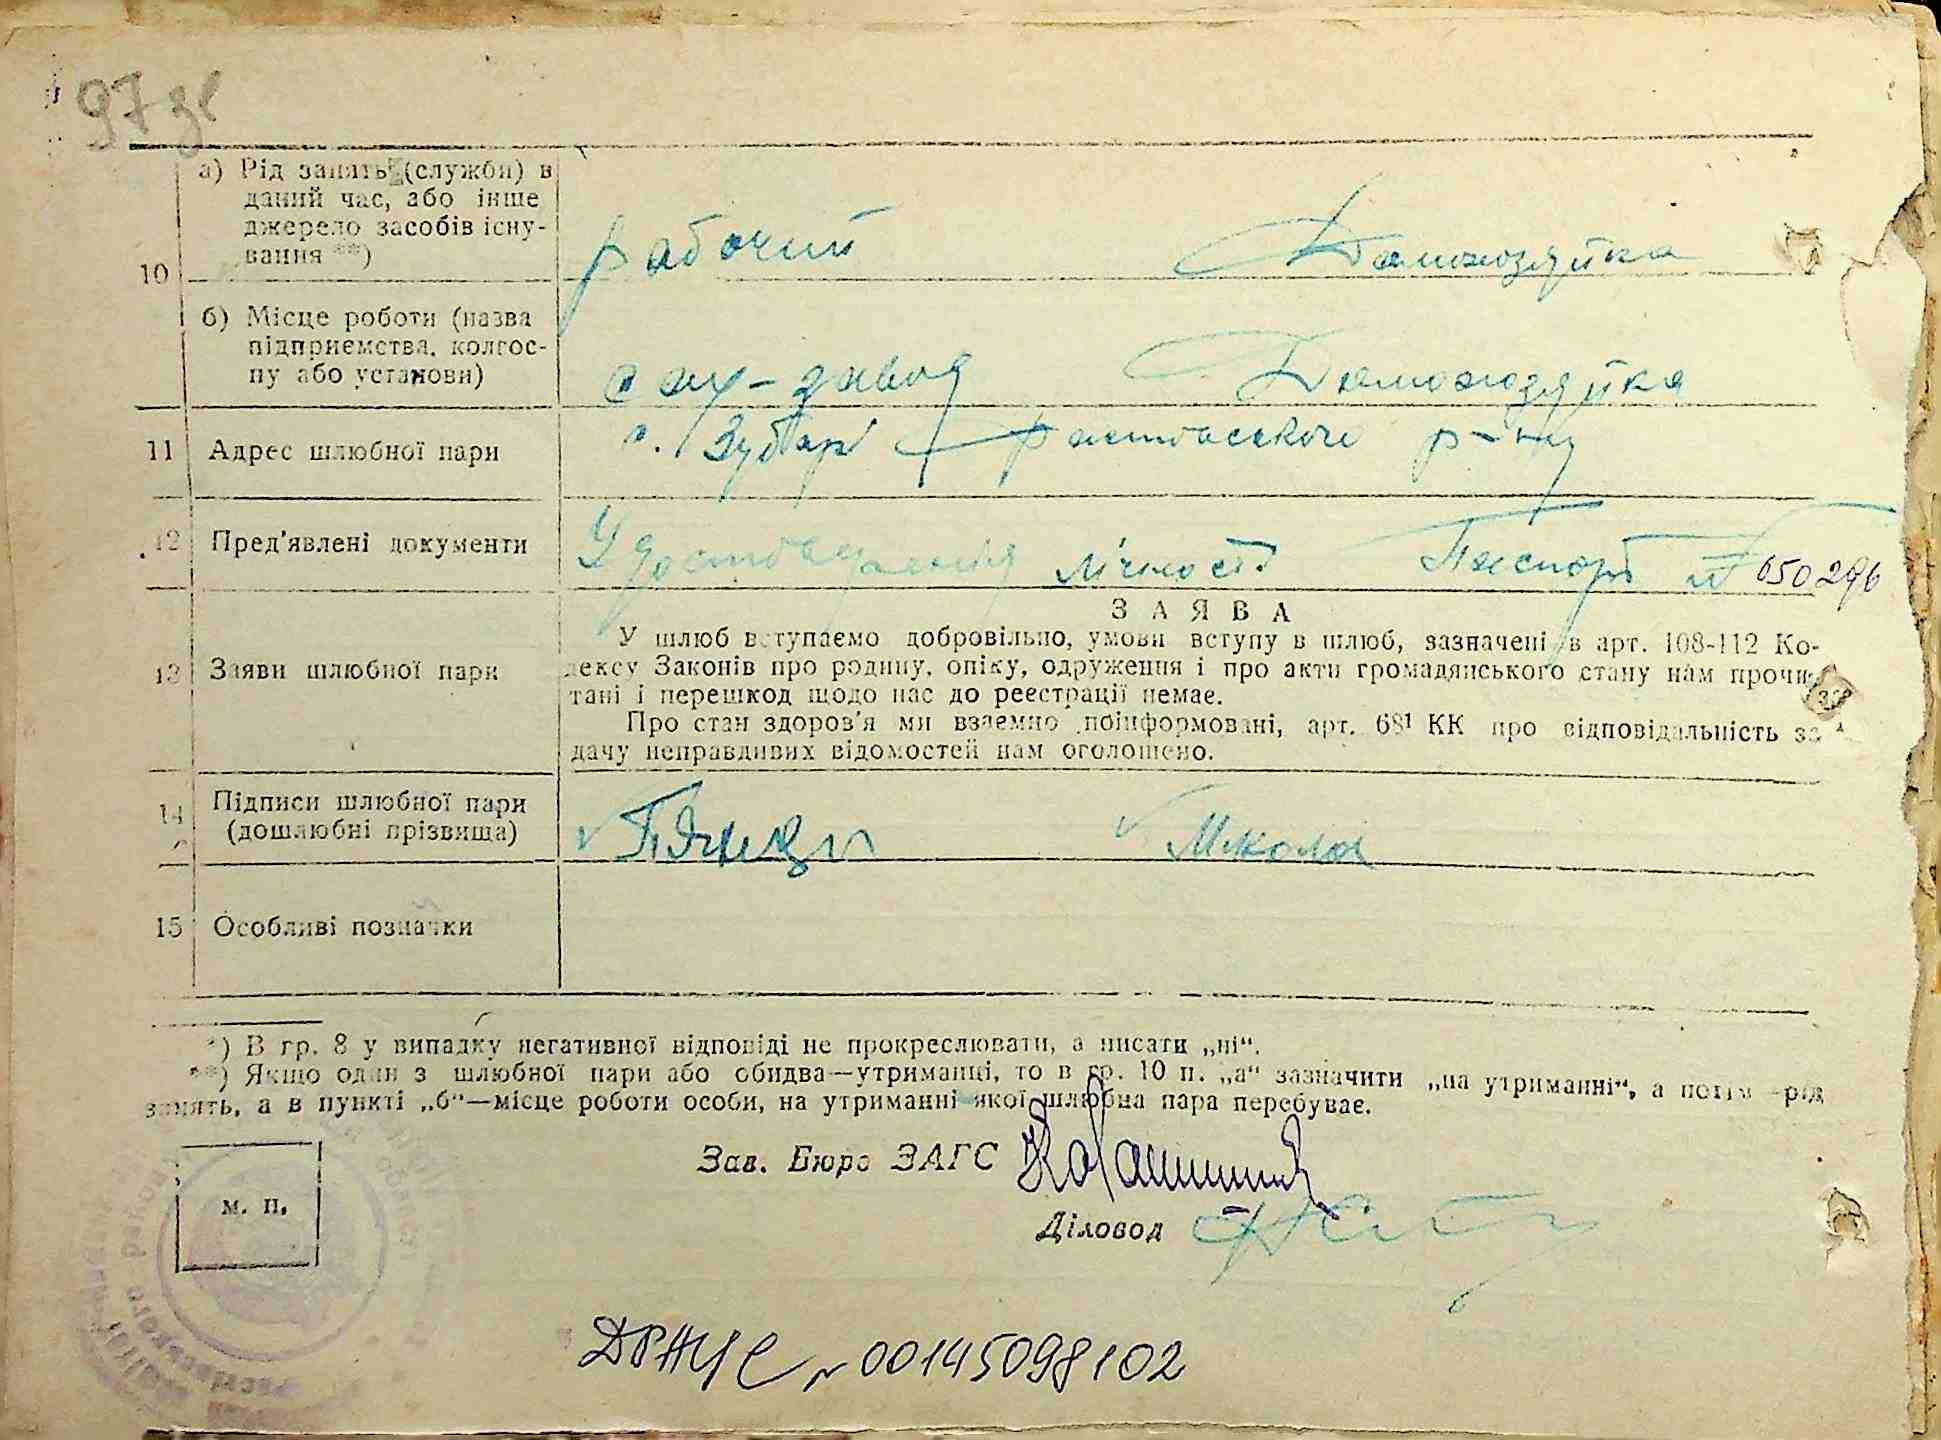 97 зв
а) Рід занять (служби) в
даний час, або інше
джерело засобів існу-
вання **)
рабочий Домохозяйка
10
б) Місце роботи (назва
підприємства, колгос-
пу або установи)
сах-завод Домохозяйка
11 Адрес шлюбної пари
с. Зубарі р-ну
12 Пред'явлені документи
Удостоверения лічності Паспорт 650296
ЗАЯВА
13 Заяви шлюбної пари
У шлюб вступаємо добровільно, умови вступу в шлюб, зазначені в арт. 108-112 Ко-
дексу Законів про родину, опіку, одруження і про акти громадянського стану нам прочи-
тані і перешкод щодо нас до реєстрації немає.
Про стан здоров'я ми взаємно поінформовані, арт. 68¹ КК про відповідальність за
дачу неправдивих відомостей нам оголошено.
14 Підписи шлюбної пари
(дошлюбні прізвища)
Микола
15 Особливі позначки
*) В гр. 8 у випадку негативної відповіді не прокреслювати, а писати „ні“.
**) Якщо один з шлюбної пари або обидва—утриманці, то в гр. 10 п. „а“ зазначити „на утриманні“, а потім рід
занять, а в пункті „б“—місце роботи особи, на утриманні якої шлюбна пара перебуває.
Зав. Бюро ЗАГС
м. п.
Діловод
ДРАЦС № 00145098102